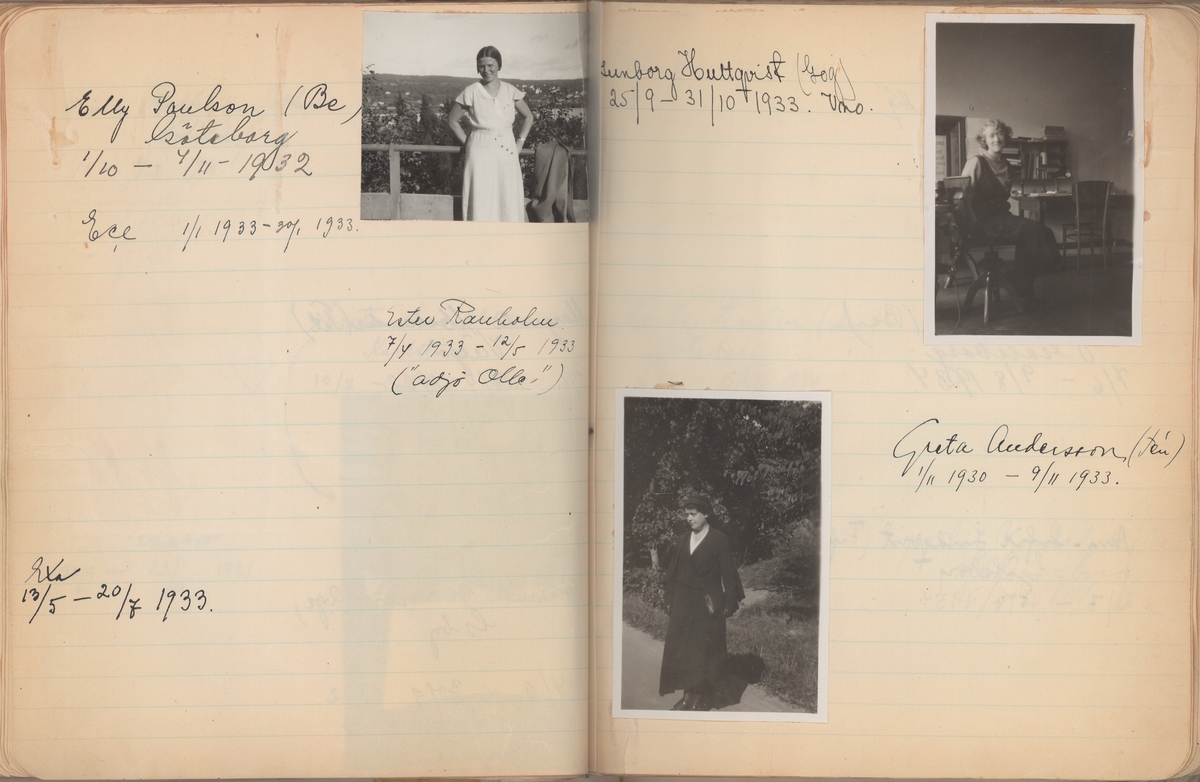 Elly Paulson (Be)
Göteborg
1/10 — 7/11 – 1932
1/1 1933 – 30/1 1933.
Ester Ranholm
7/4 1933 – 12/5 1933
("adjö Olle!")
Exa
13/5 — 20/7 1933.
Gunborg Hultqvist (Gog)
25/9 – 31/10 1933. Vno.
Greta Andersson, (Tén)
1/11 1930 — 9/11 1933.